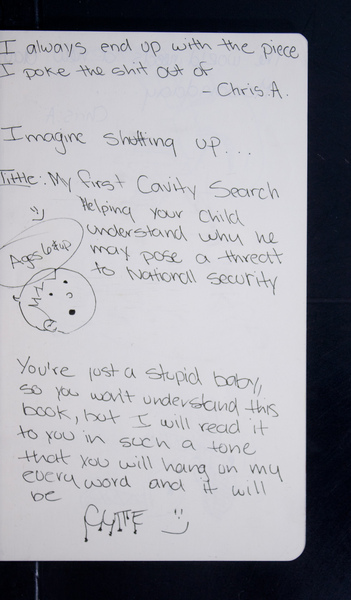 I always end up with the piece
I poke the shit out of
- Chris.A.
Imagine shutting up...
Tittle: My first Cavity Search
Helping your child
understand why he
may pose a threatt
to National security
Ages 6 & up
You're just a stupid baby,
so you won't understand this
book, but I will read it
to you in such a tone
that you will hang on my
every word and it will
be
CUTE